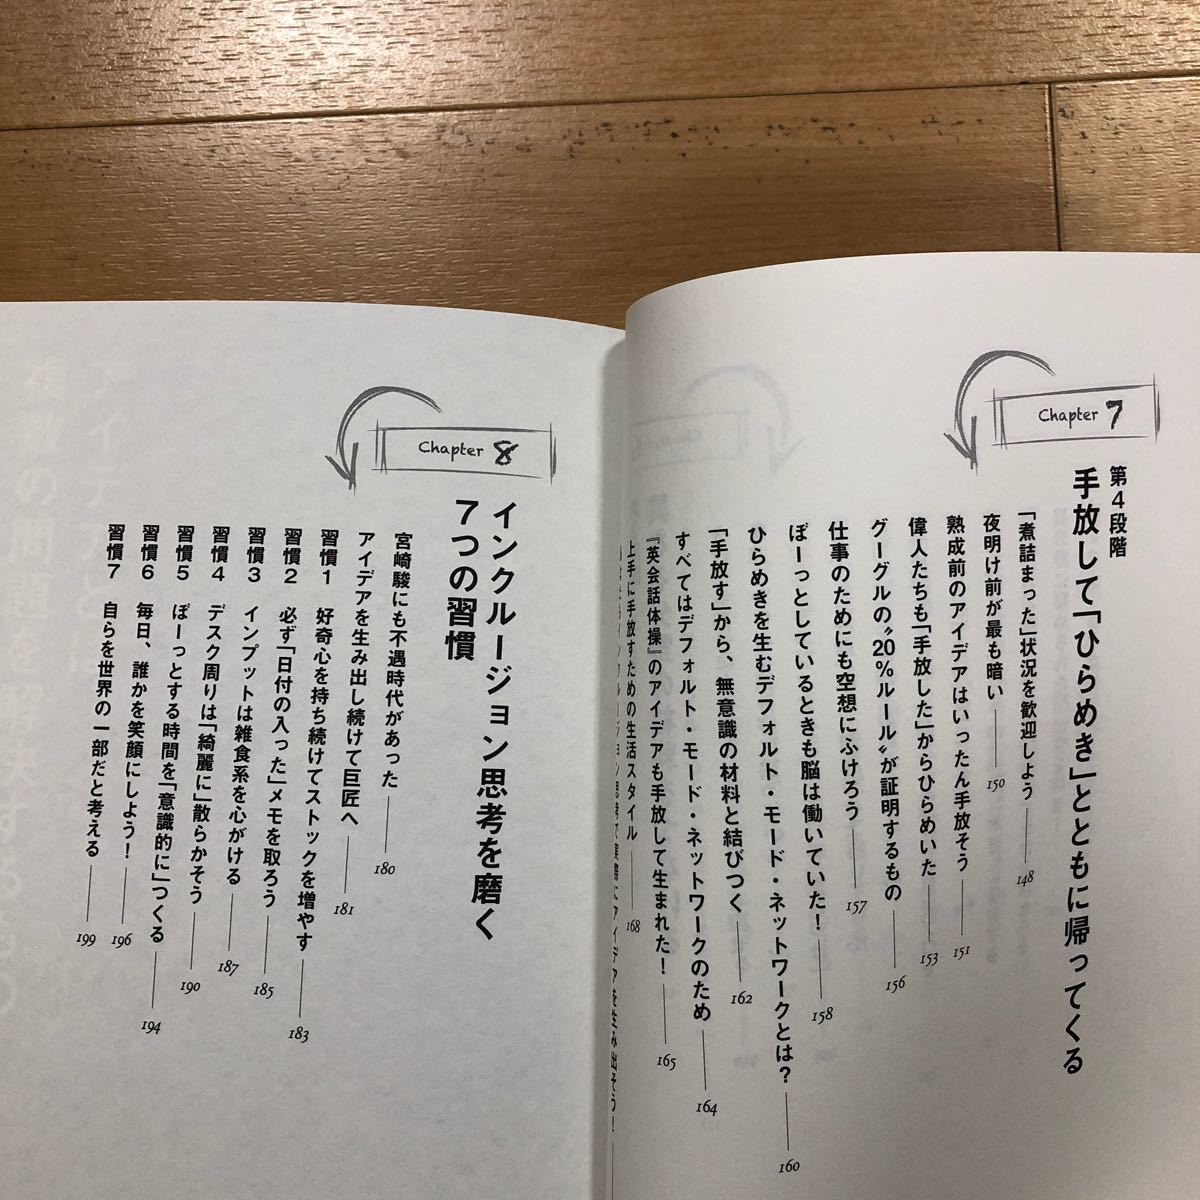 Chapter 7
第4段階
手放して「ひらめき」とともに帰ってくる
「煮詰まった」状況を歓迎しよう 148
夜明け前が最も暗い 150
熟成前のアイデアはいったん手放そう 151
偉人たちも「手放した」からひらめいた 153
グーグルの〝20%ルール〟が証明するもの 156
仕事のためにも空想にふけろう 157
ぼーっとしているときも脳は働いていた! 158
ひらめきを生むデフォルト・モード・ネットワークとは? 160
「手放す」から、無意識の材料と結びつく 162
すべてはデフォルト・モード・ネットワークのため 164
『英会話体操』のアイデアも手放して生まれた! 165
上手に手放すための生活スタイル 168
インクルージョン思考で実際にアイデアを生み出そう!
Chapter 8
インクルージョン思考を磨く
7つの習慣
宮崎駿にも不遇時代があった 180
アイデアを生み出し続けて巨匠へ 181
習慣1 好奇心を持ち続けてストックを増やす 183
習慣2 必ず「日付の入った」メモを取ろう 185
習慣3 インプットは雑食系を心がける 187
習慣4 デスク周りは「綺麗に」散らかそう 190
習慣5 ぼーっとする時間を「意識的に」つくる 194
習慣6 毎日、誰かを笑顔にしよう! 196
習慣7 自らを世界の一部だと考える 199